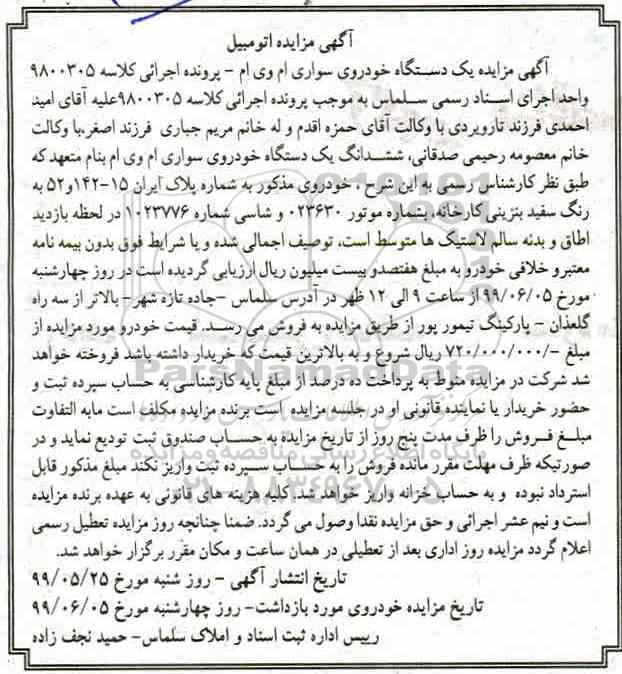 آگهی مزایده اتومبیل
آگهی مزایده یک دستگاه خودروی سواری ام وی ام - پرونده اجرائی کلاسه ۹۸۰۰۳۰۵
واحد اجرای اسناد رسمی سلماس به موجب پرونده اجرائی کلاسه ۹۸۰۰۳۰۵علیه آقای امید
احمدی فرزند تارویردی با وکالت آقای حمزه اقدم و له خانم مریم جباری فرزند اصغر،با وکالت
خانم معصومه رحیمی صدقانی، ششدانگ یک دستگاه خودروی سواری ام وی ام بنام متعهد که
طبق نظر کارشناس رسمی به این شرح ، خودروی مذکور به شماره پلاک ایران ۱۵-۱۴۲و۵۲ به
رنگ سفید بنزینی کارخانه، بشماره موتور ۰۲۳۶۳۰ و شاسی شماره ۱۰۲۳۷۷۶ در لحظه بازدید
اطاق و بدنه سالم لاستیک ها متوسط است، توصیف اجمالی شده و با شرایط فوق بدون بیمه نامه
معتبرو خلافی خودرو به مبلغ هفتصدو بیست میلیون ریال ارزیابی گردیده است در روز چهارشنبه
مورخ ۹۹/۰۶/۰۵ از ساعت ۹ الی ۱۲ ظهر در آدرس سلماس -جاده تازه شهر- بالاتر از سه راه
گلعذان - پارکینگ تیمور پور از طریق مزایده به فروش می رسد. قیمت خودرو مورد مزایده از
مبلغ -/۷۲۰/۰۰۰/۰۰۰ ریال شروع و به بالاترین قیمت که خریدار داشته باشد فروخته خواهد
شد شرکت در مزایده منوط به پرداخت ده درصد از مبلغ پایه کارشناسی به حساب سپرده ثبت و
حضور خریدار یا نماینده قانونی او در جلسه مزایده است برنده مزایده مکلف است مابه التفاوت
مبلغ فروش را ظرف مدت پنج روز از تاریخ مزایده به حساب صندوق ثبت تودیع نماید و در
صورتیکه ظرف مهلت مقرر مانده فروش را به حساب سپرده ثبت واریز نکند مبلغ مذکور قابل
استرداد نبوده و به حساب خزانه واریز خواهد شد. کلیه هزینه های قانونی به عهده برنده مزایده
است و نیم عشر اجرائی و حق مزایده نقدا وصول می گردد. ضمنا چنانچه روز مزایده تعطیل رسمی
اعلام گردد مزایده روز اداری بعد از تعطیلی در همان ساعت و مکان مقرر برگزار خواهد شد.
تاریخ انتشار آگهی - روز شنبه مورخ ۹۹/۰۵/۲۵
تاریخ مزایده خودروی مورد بازداشت- روز چهارشنبه مورخ ۹۹/۰۶/۰۵
رییس اداره ثبت اسناد و املاک سلماس- حمید نجف زاده
ParsNamadData
پایگاه اطلاع رسانی مناقصه و مزایده
۰۲۱-۸۸۳۴۹۶۷۰-۵